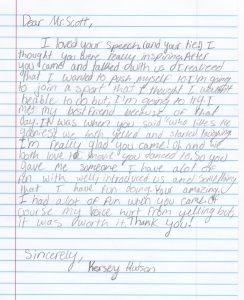 Dear Mr. Scott,
I loved your speech (and your tie!) I
thought you were really inspiring. After
you came and talked with us I realized
that I wanted to push myself so I'm going
to join a sport that I thought I wouldn't
be able to do but, I'm going to try! I
met my best friend because of that
day. It was when you said "who likes He
" we both yelled and started laughing.
I'm really glad you came! Oh and we
both love the move you danced to. So you
gave me someone I have alot of
fun with, well, introduced us and something
that I have fun doing. Your amazing.
I had alot of fun when you came. Of
course my voice hurt from yelling but,
it was worth it. Thank you!
Sincerely,
Kersey Hutson